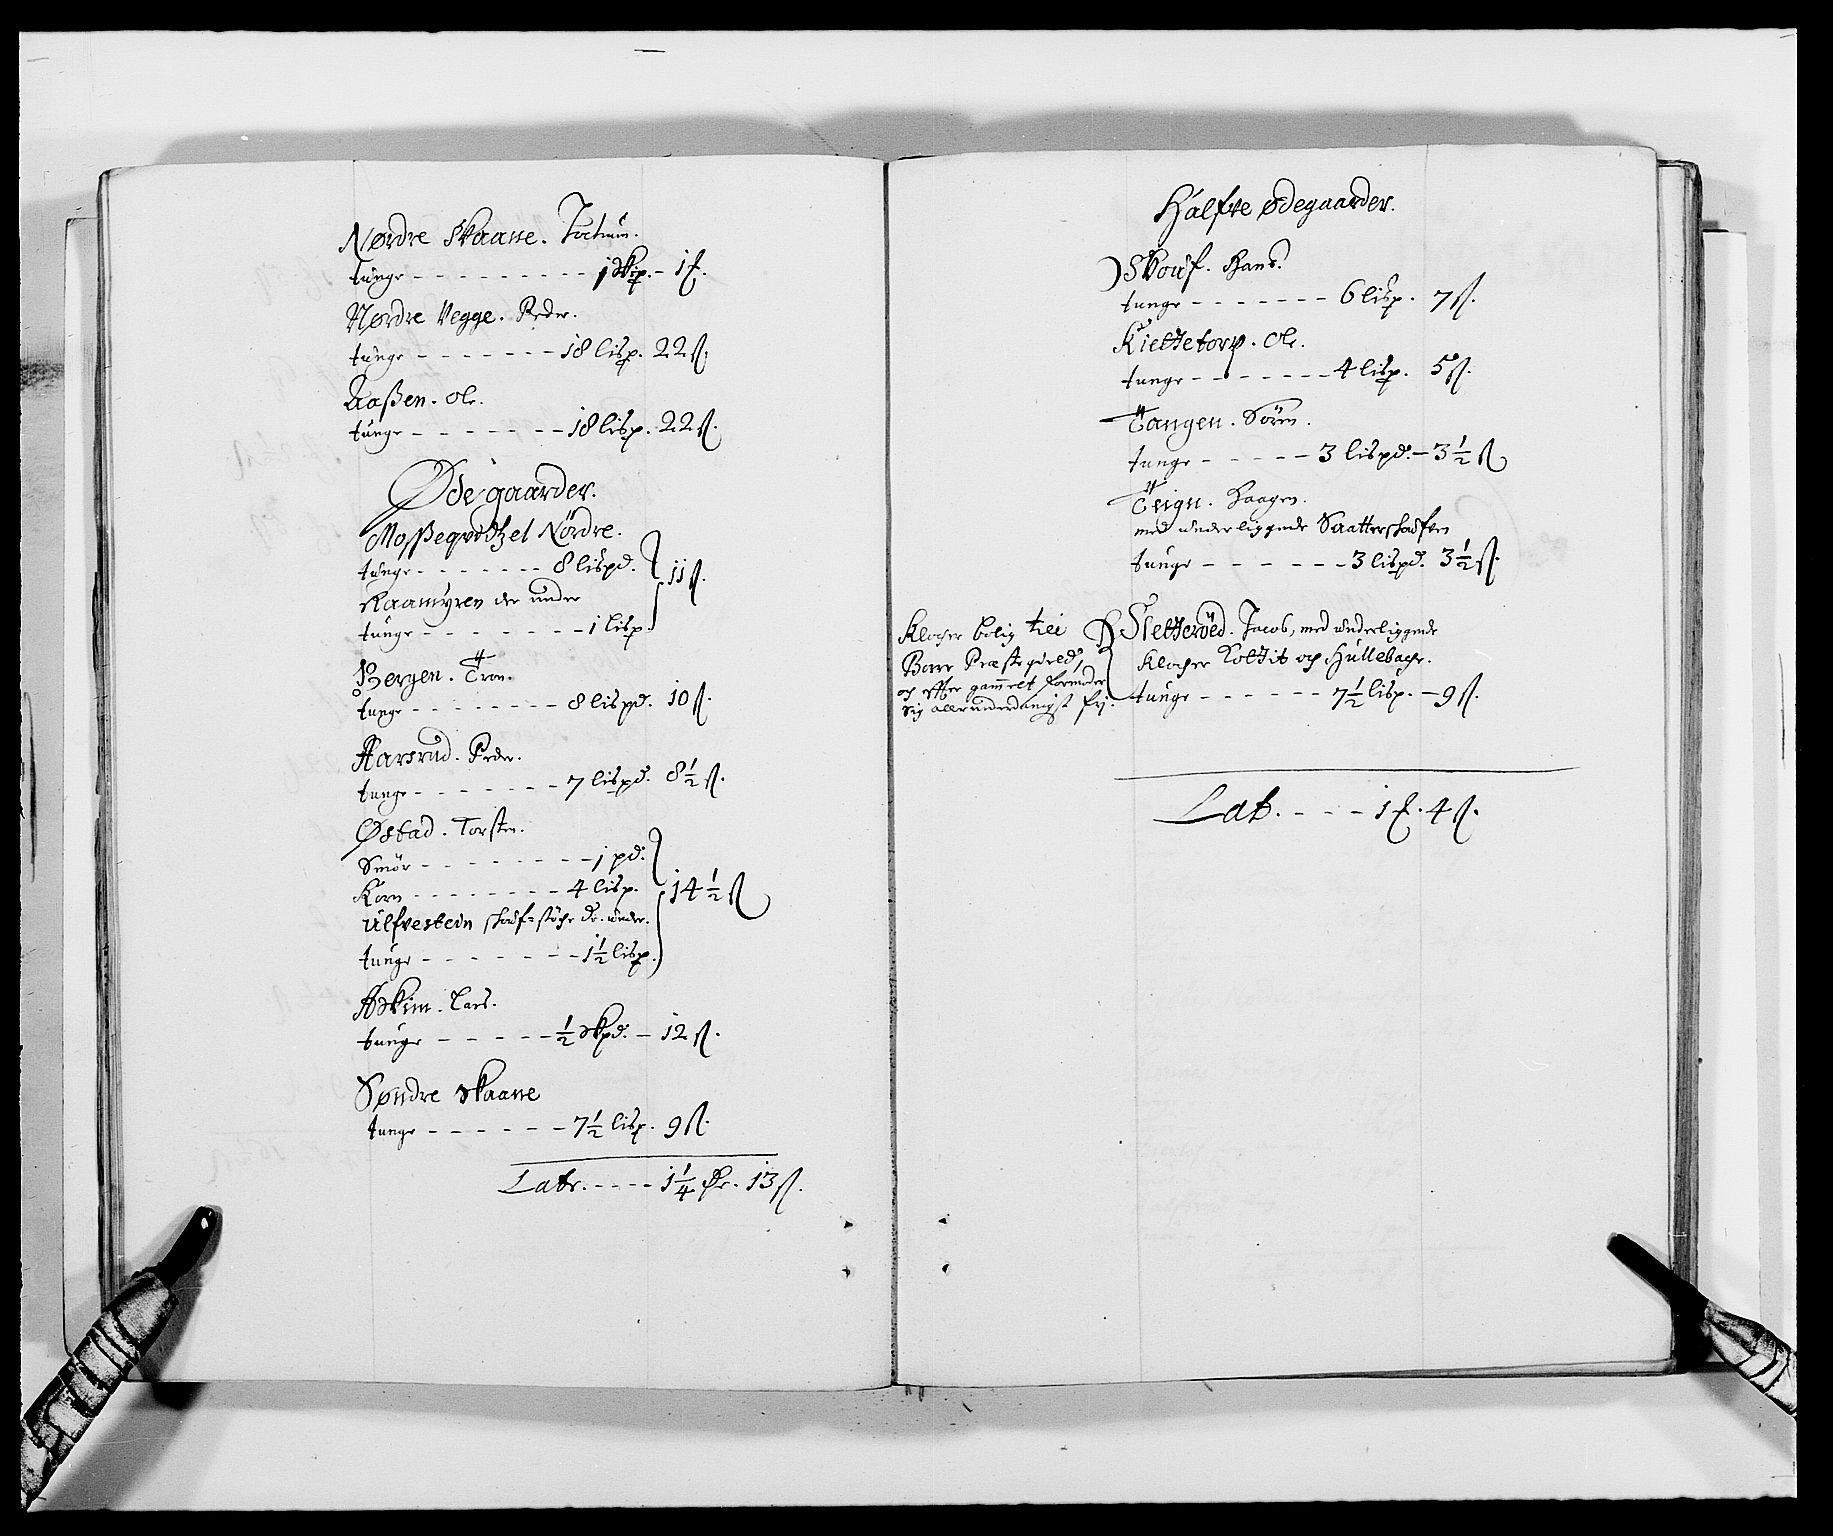 Nørdre Skaane.
tunge - - - - - - - - - 1 Skip. - 1 f.
Nørdre Vegge. Peder.
tunge - - - - - - - 18 lisp. 22 ß.
Aaßen. Ole.
tunge - - - - - - - 18 lisp. 22 ß.
Ødegaarder.
Moßeqvetzel Nördre.
tunge - - - - - - - 8 lispd. } 11 ß.
Raamyren der under
tunge - - - - - - - 1 lisp.
Bergen. Tron.
tunge - - - - - - - - 8 lispd. 10 ß.
Aarsrud. Peder.
tunge - - - - - - - 7 lispd. 8½ ß.
Østad. Torsten.
Smör - - - - - - - - - 1 pd.
Korn - - - - - - - - 4 lisp. } 14½ ß
Ulfvestein skouf-støche der under.
tunge - - - - - - - 1½ lisp.
Askim. Lars.
tunge - - - - - ½ Skpd. - 12 ß.
Søndre Skaane
tunge - - - - - - 7½ lisp. 9 ß.
Latr. - - - - 1¼ Dr. 13 ß.
Halfve Ødegaarder.
Skouf. Hans.
tunge - - - - - - - 6 lisp. 7 ß.
Kiettetorp. Ole.
tunge - - - - - - - 4 lisp. 5 ß.
Tangen. Sörin.
tunge - - - - - 3 lispd. - 3½ ß
Teign. Haagen.
med underliggende Saatterskoufven
tunge - - - - - - 3 lispd. 3½ ß.
Klocher bolig till
Borre Præstegield,
og efter gammelt formeder
sig allerunderdanigst frj.
Sletteröed. Jacob, med underliggende
Klocher Koltit och Hullebach.
tunge - - - - - - 7½ lisp. - 9 ß.
Lat. - - - 1 f. 4 ß.